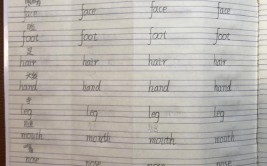 face face face face
foot foot foot foot
足
hair hair hair hair
hand hand hand hand
手
leg leg leg leg
腿
mouth mouth mouth mouth
嘴
nose nose nose nose